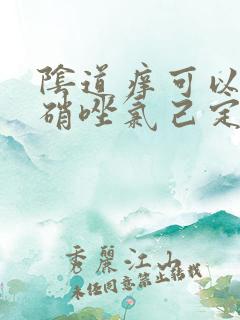 陰道癢可以
硝唑氯己定
秀麗江山
未经同意禁止转载